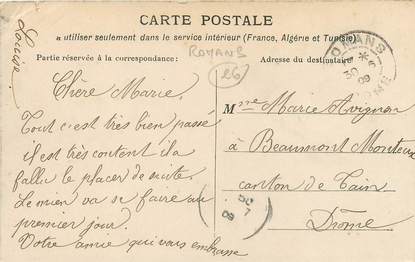 CARTE POSTALE
à utiliser seulement dans le service intérieur (France, Algérie et Tunisie)
Partie réservée à la correspondance:
Adresse du destinataire
ROMANS
26
ROMANS
30
09
Louise.
Chère Marie.
Tout c'est très bien passé
il est très content il a
fallu le placer de suite.
Le mien va se faire au
premier jour.
Votre amie qui vous embrasse
Mme Marie Avignon
à Beaumont Monteux
canton de Tain
Drôme